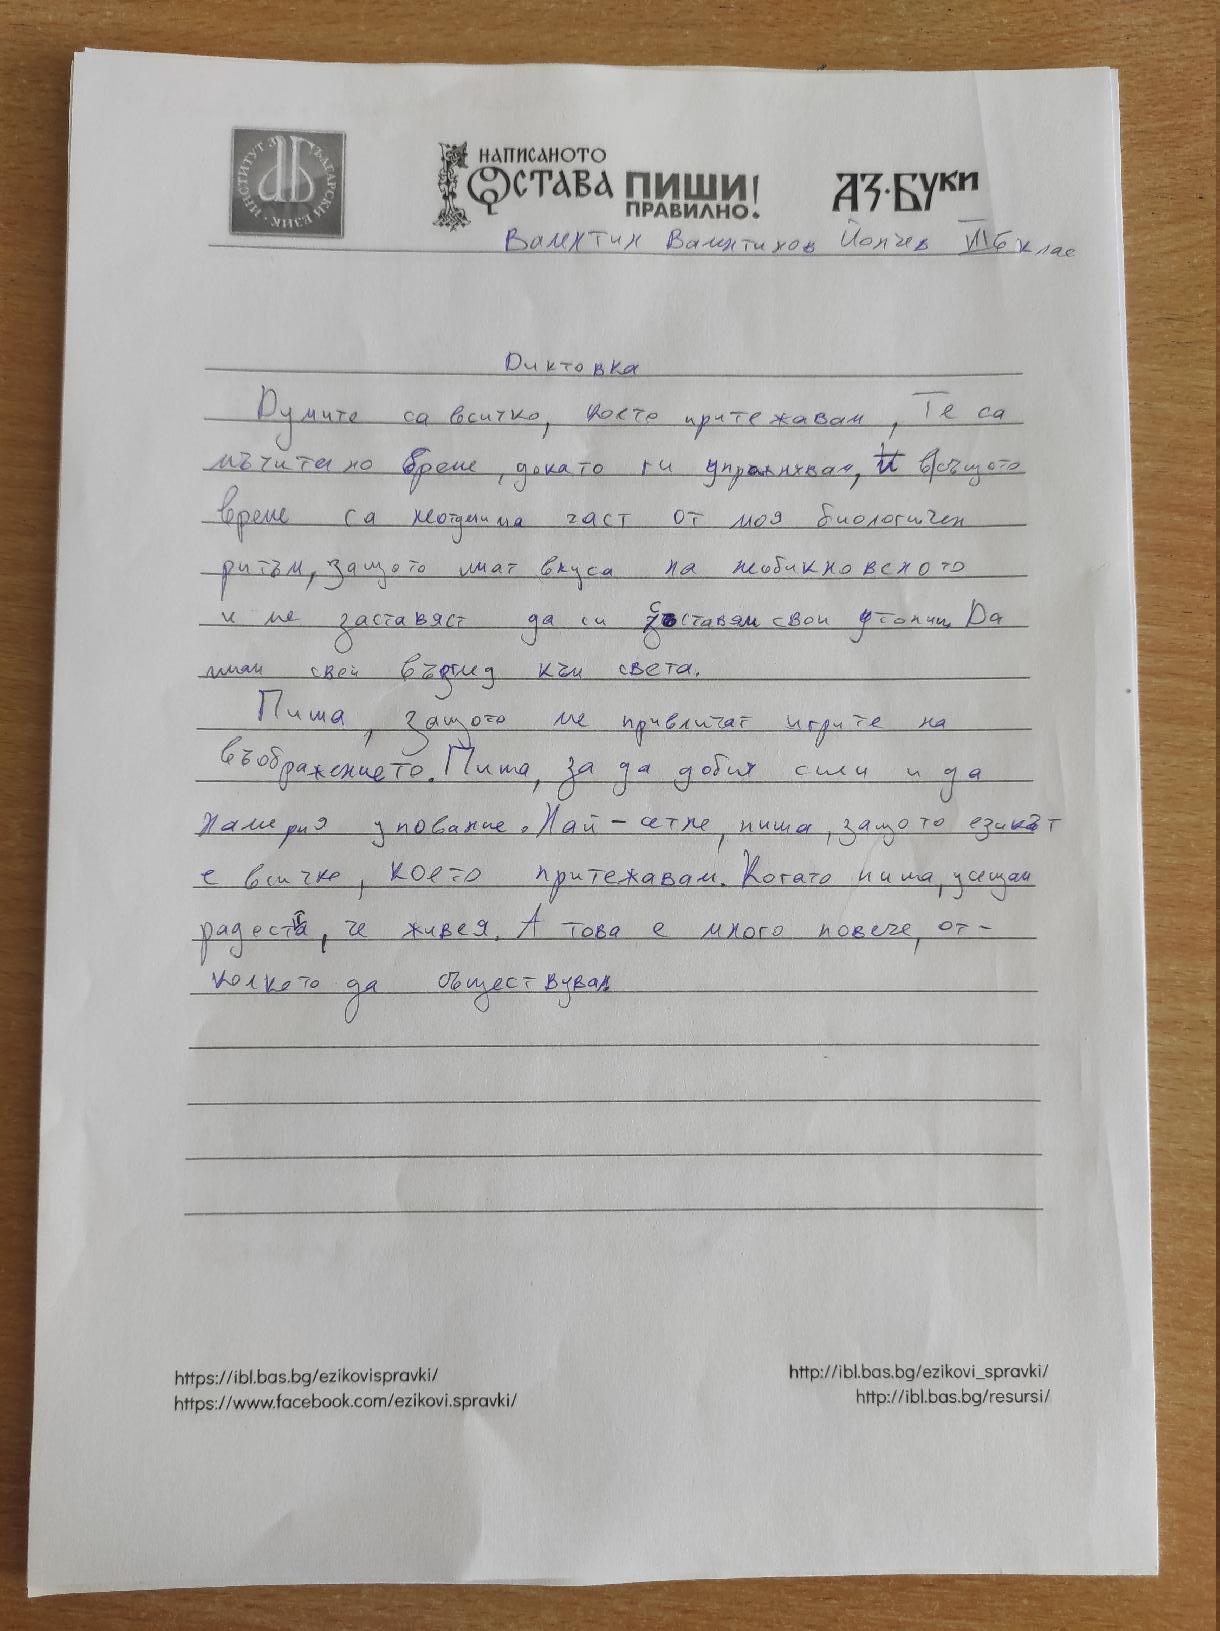 ИНСТИТУТ ЗА БЪЛГАРСКИ ЕЗИК
НАПИСАНОТО
ОСТАВА ПИШИ!
ПРАВИЛНО!
АЗ·БУКИ
Валентин Валентинов Йончев VIIб клас
Диктовка
Думите са всичко, което притежавам, Те са
мъчително време, докато ги упражнявам, и в същото
време са неотдимима част от моя биологичен
ритъм, защото имат вкуса на необикновеното
и ме заставят да си съставям свои утопии. Да
имам свой възглед към света.
Пиша, защото ме привличат игрите на
въображението. Пиша, за да добия сили и да
намеря упование. Най-сетне, пиша, защото езикът
е всичко, което притежавам. Когато пиша, усещам
радостта, че живея. А това е много повече, от-
колкото да съществувам
https://ibl.bas.bg/ezikovispravki/
https://www.facebook.com/ezikovi.spravki/
http://ibl.bas.bg/ezikovi_spravki/
http://ibl.bas.bg/resursi/